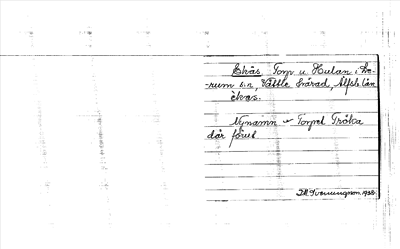 Ekås, Torp u. Hulan i Le-
rum s:n, Vättle härad, Älfsb. län
ekås.
Nynamn – Torpet Tröka
där förut
1938.